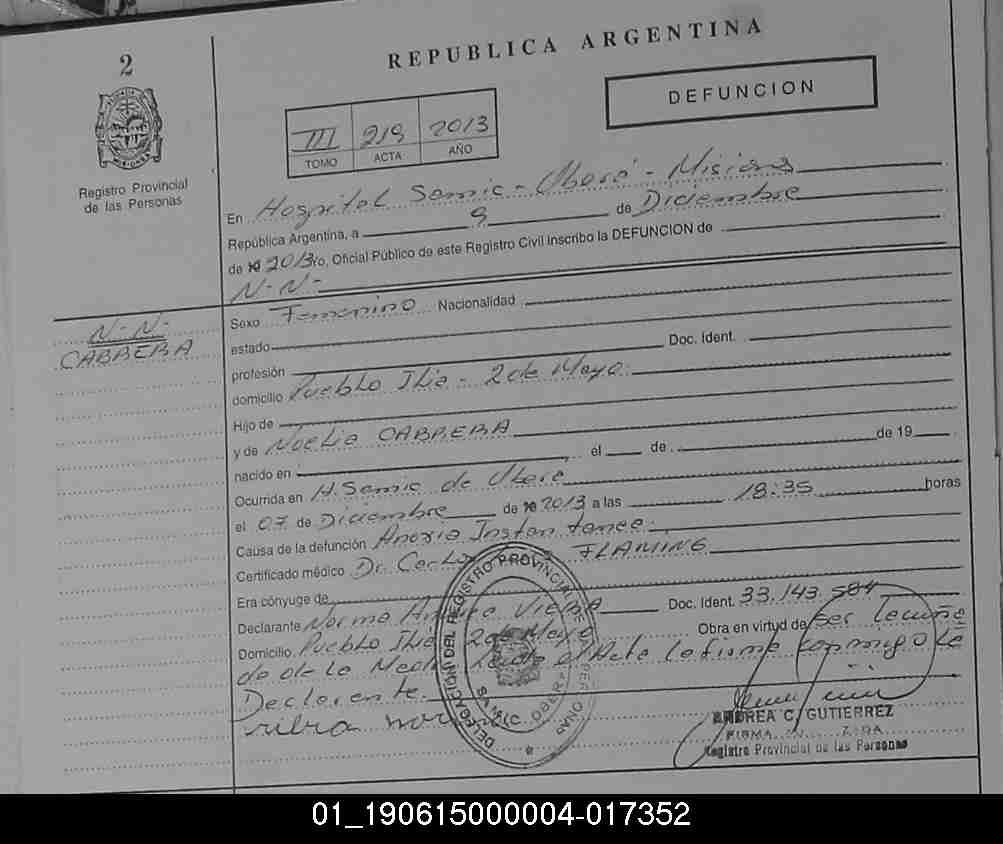 2
REPUBLICA ARGENTINA
DEFUNCION
III 219 2013
TOMO ACTA AÑO
Registro Provincial
de las Personas
En Hospital Samic - Oberá - Misiones
República Argentina, a 9 de Diciembre
de 19 2013 Yo, Oficial Público de este Registro Civil inscribo la DEFUNCION de
N-N-
N-N-
CABRERA
Sexo Femenino Nacionalidad
estado
profesión Doc. Ident.
domicilio Pueblo Illia - 2 de Mayo.
Hijo de
y de Noelia CABRERA
nacido en el de de 19
Ocurrida en H. Samic de Oberá
el 07 de Diciembre de 19 2013 a las 18:35 horas
Causa de la defunción Anoxia Instantanea.
Certificado médico Dr. FLAMING
Era cónyuge de
Declarante Norma VIERA Doc. Ident. 33.143.504
Domicilio Pueblo Illia 2 de Mayo Obra en virtud de Ser la cuña
da de la el Acta la firma conmigo la
Declarante.
DELEGACION DEL REGISTRO PROVINCIAL DE PERSONAS
SAMIC OBERA
ANDREA C. GUTIERREZ
Registro Provincial de las Personas
01_190615000004-017352